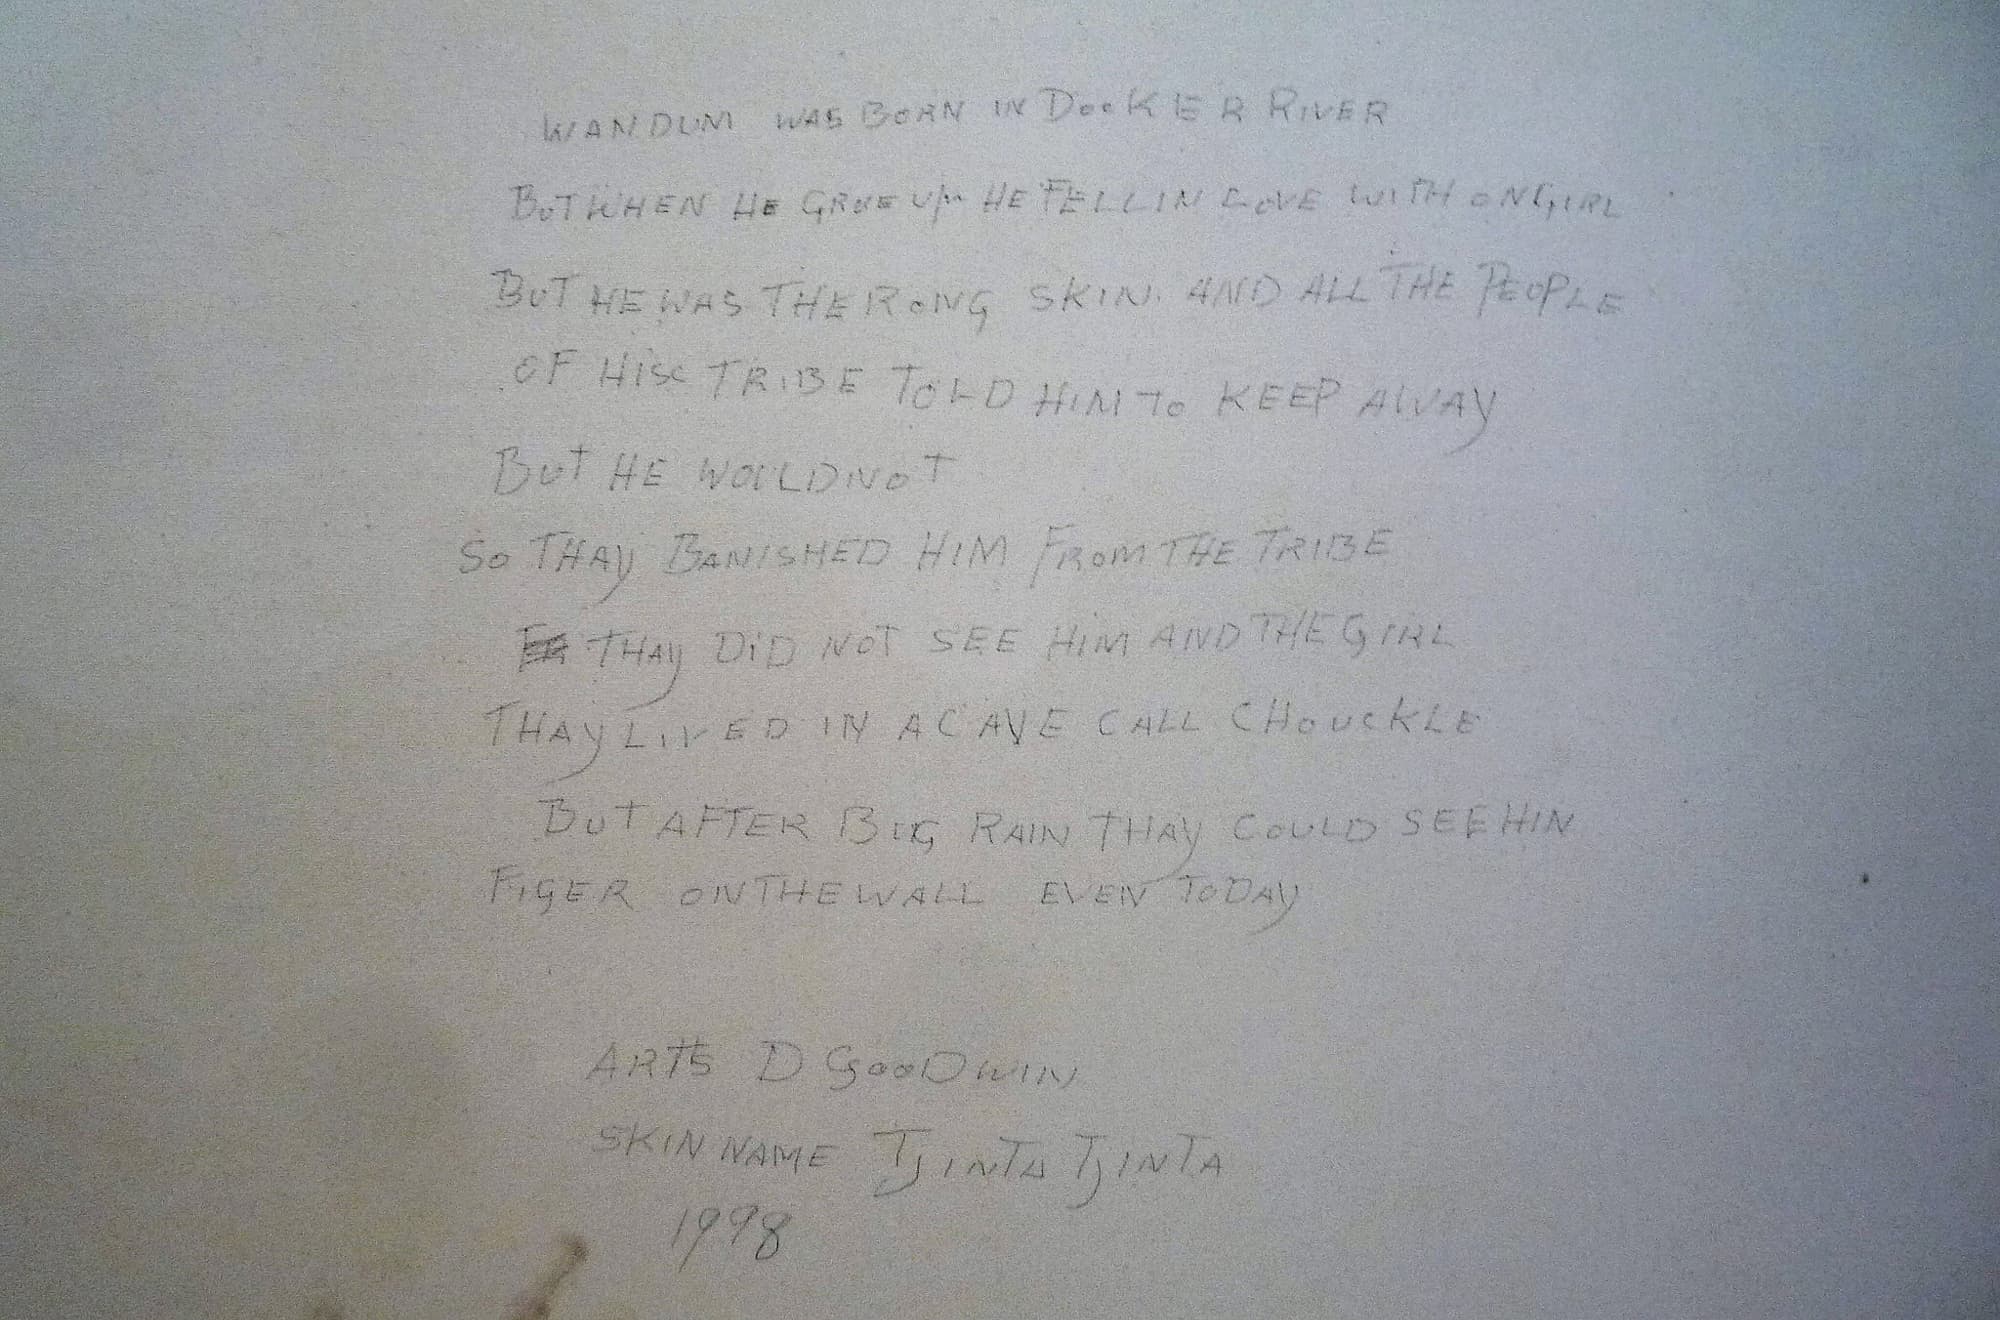 WANDUM WAS BORN IN DOCKER RIVER
BUT WHEN HE GRUE UP HE FELL IN LOVE WITH ON GIRL
BUT HE WAS THE RONG SKIN. AND ALL THE PEOPLE
OF HISC TRIBE TOLD HIM TO KEEP AWAY
BUT HE WOULD NOT
SO THAY BANISHED HIM FROM THE TRIBE
THAY DID NOT SEE HIM AND THE GIRL
THAY LIVED IN A CAVE CALL CHOUCKLE
BUT AFTER BIG RAIN THAY COULD SEE HIN
FIGER ON THE WALL EVEN TODAY
ARTS D GOODWIN
SKIN NAME TJINTA TJINTA
1998